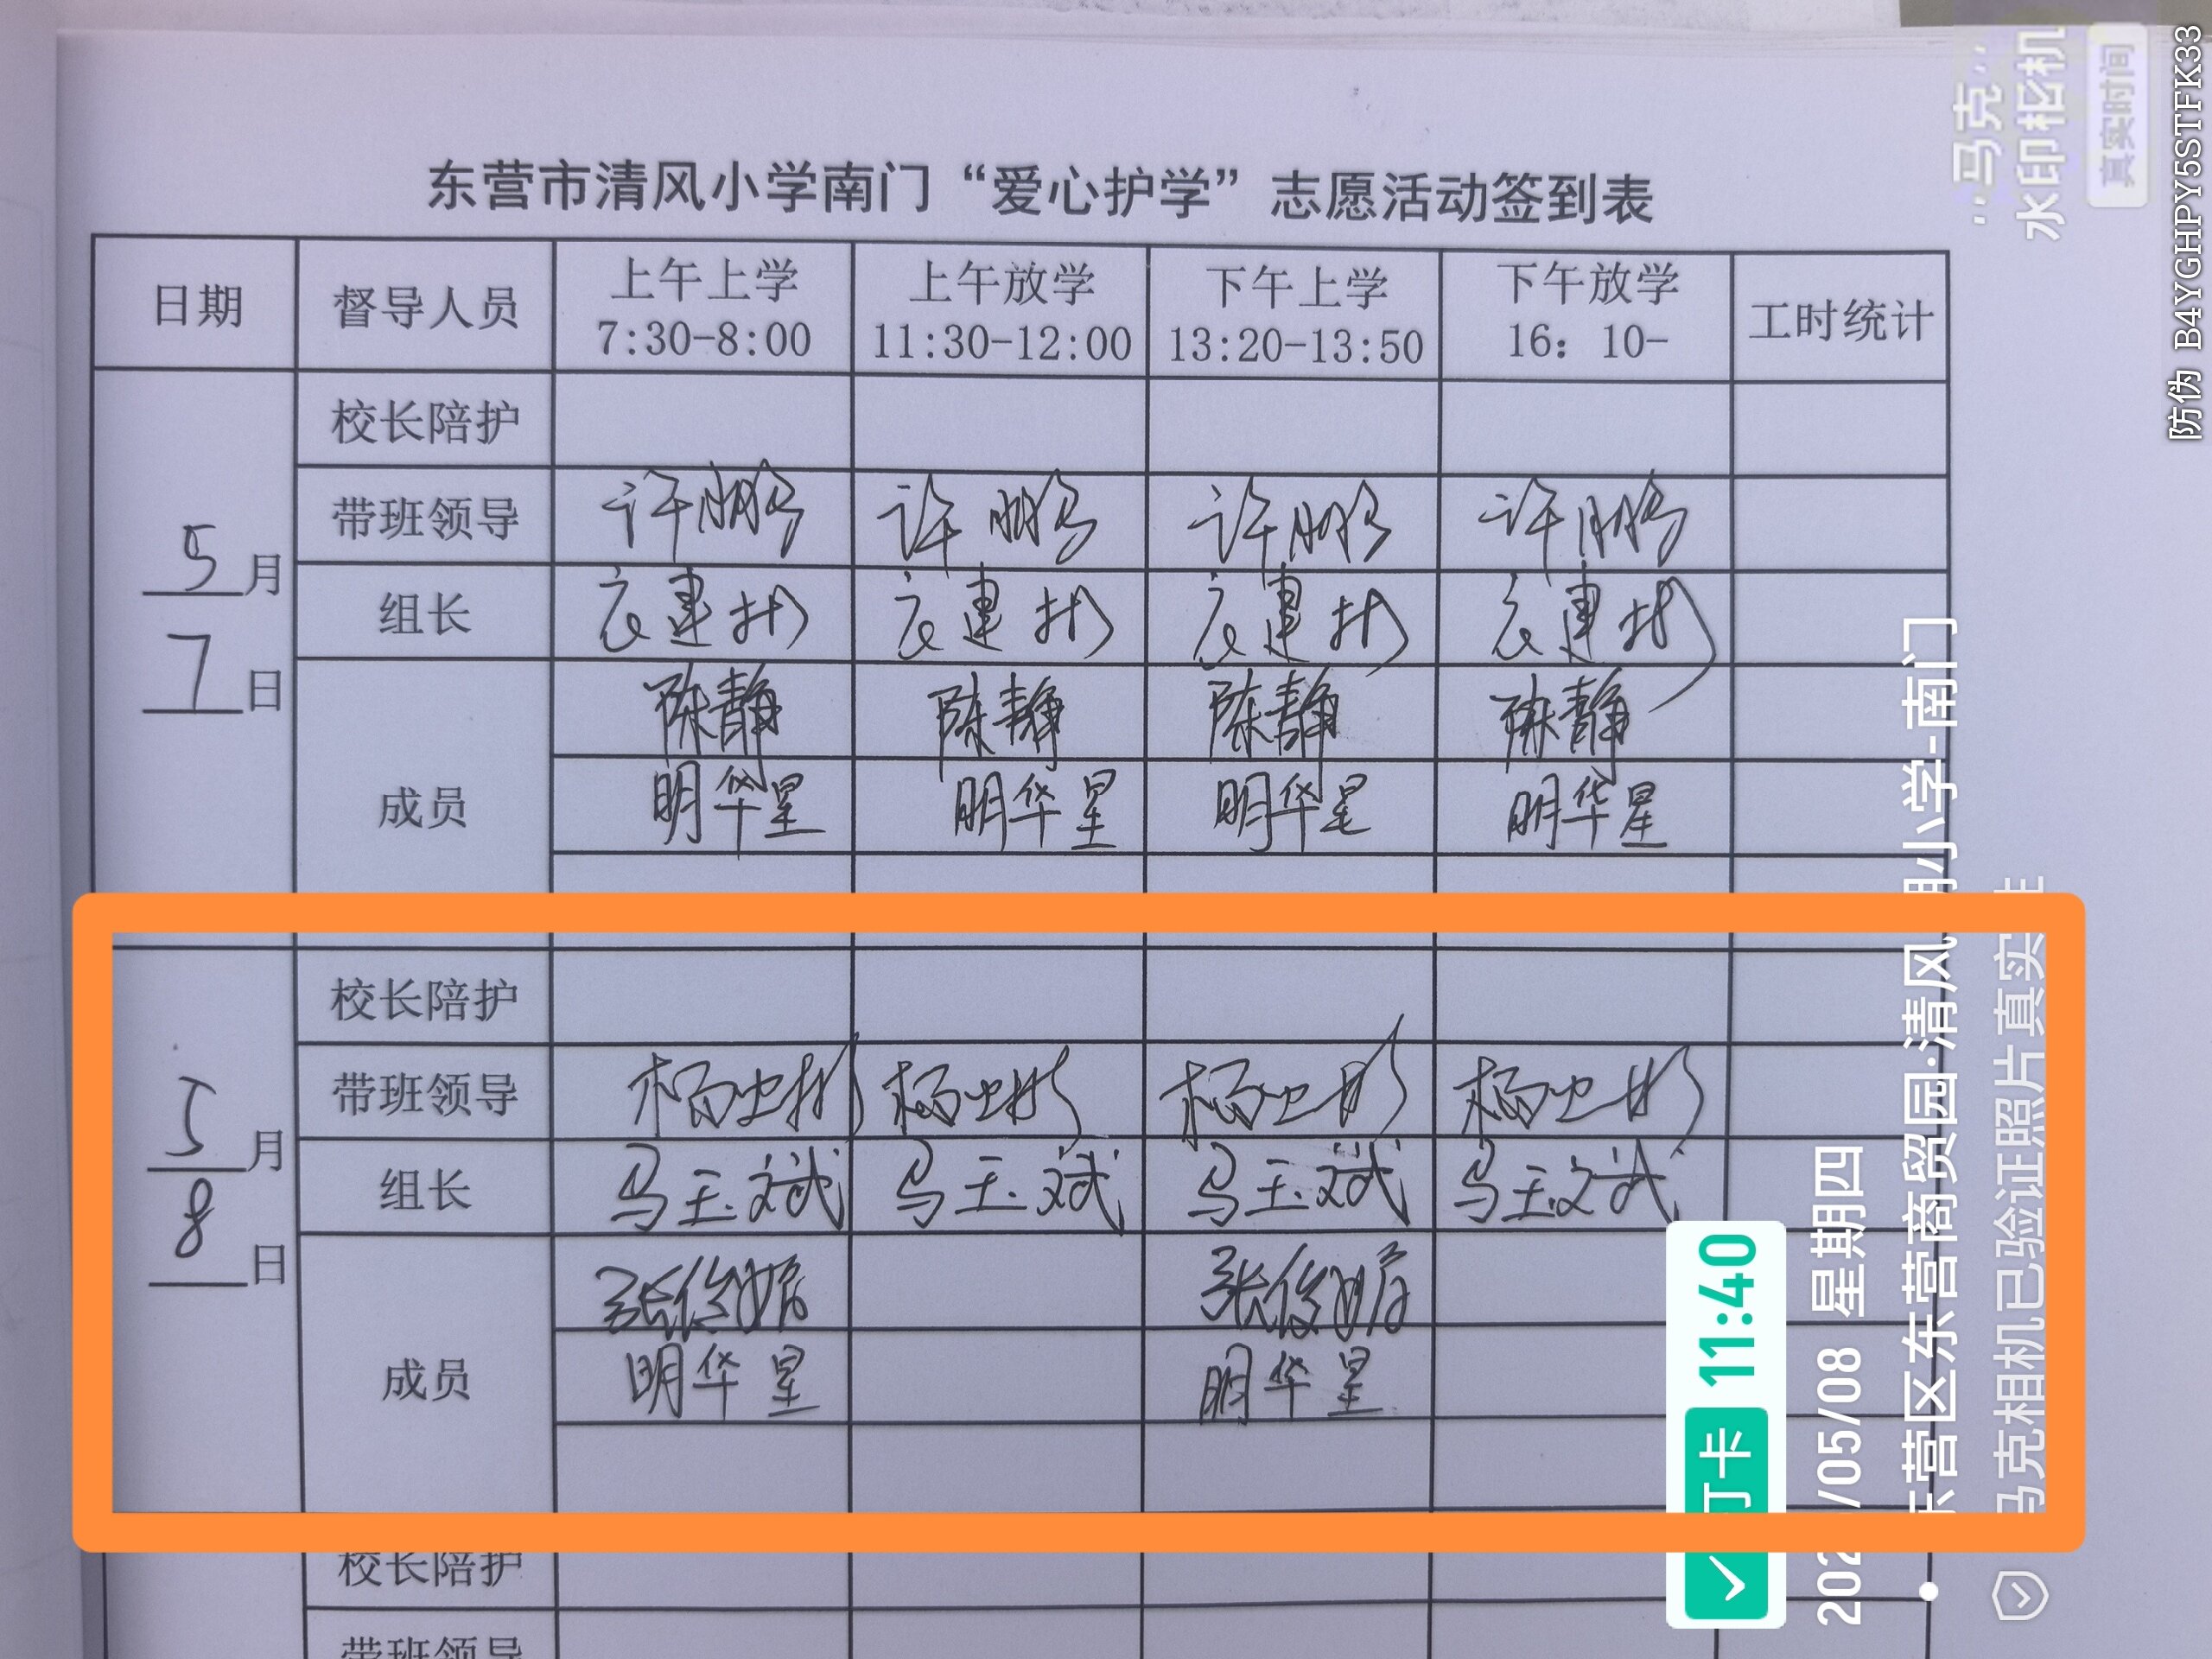 东营市清风小学南门“爱心护学”志愿活动签到表
日期 督导人员 上午上学 7:30-8:00 上午放学 11:30-12:00 下午上学 13:20-13:50 下午放学 16：10- 工时统计
5月7日
校长陪护
带班领导 许鹏 许鹏 许鹏 许鹏
组长 衣建彬 衣建彬 衣建彬 衣建彬
成员 陈静 陈静 陈静 陈静
明华星 明华星 明华星 明华星
5月8日
校长陪护
带班领导 杨 杨 杨 杨
组长 马玉斌 马玉斌 马玉斌 马玉斌
成员 张 张
明华星 明华星
校长陪护
带班领导
“马克”
水印相机
真实时间
防伪 B4YGHPY5STFK33
打卡 11:40
/05/08 星期四
东营区东营商贸园·清风 小学-南门
马克相机已验证照片真实性